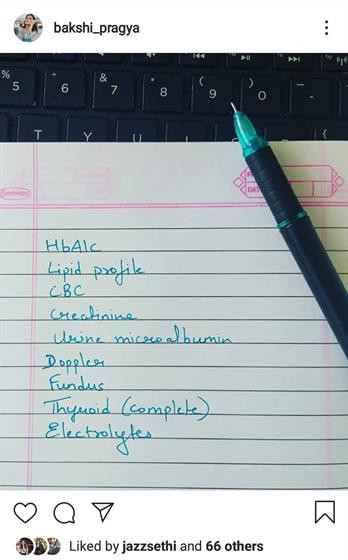 bakshi_pragya
% 5
^ 6
& 7
* 8
( 9
) 0
_ -
T Y U {
DAT
HbA1c
Lipid profile
CBC
Creatinine
Urine microalbumin
Doppler
Fundus
Thyroid (complete)
Electrolytes
Liked by jazzsethi and 66 others